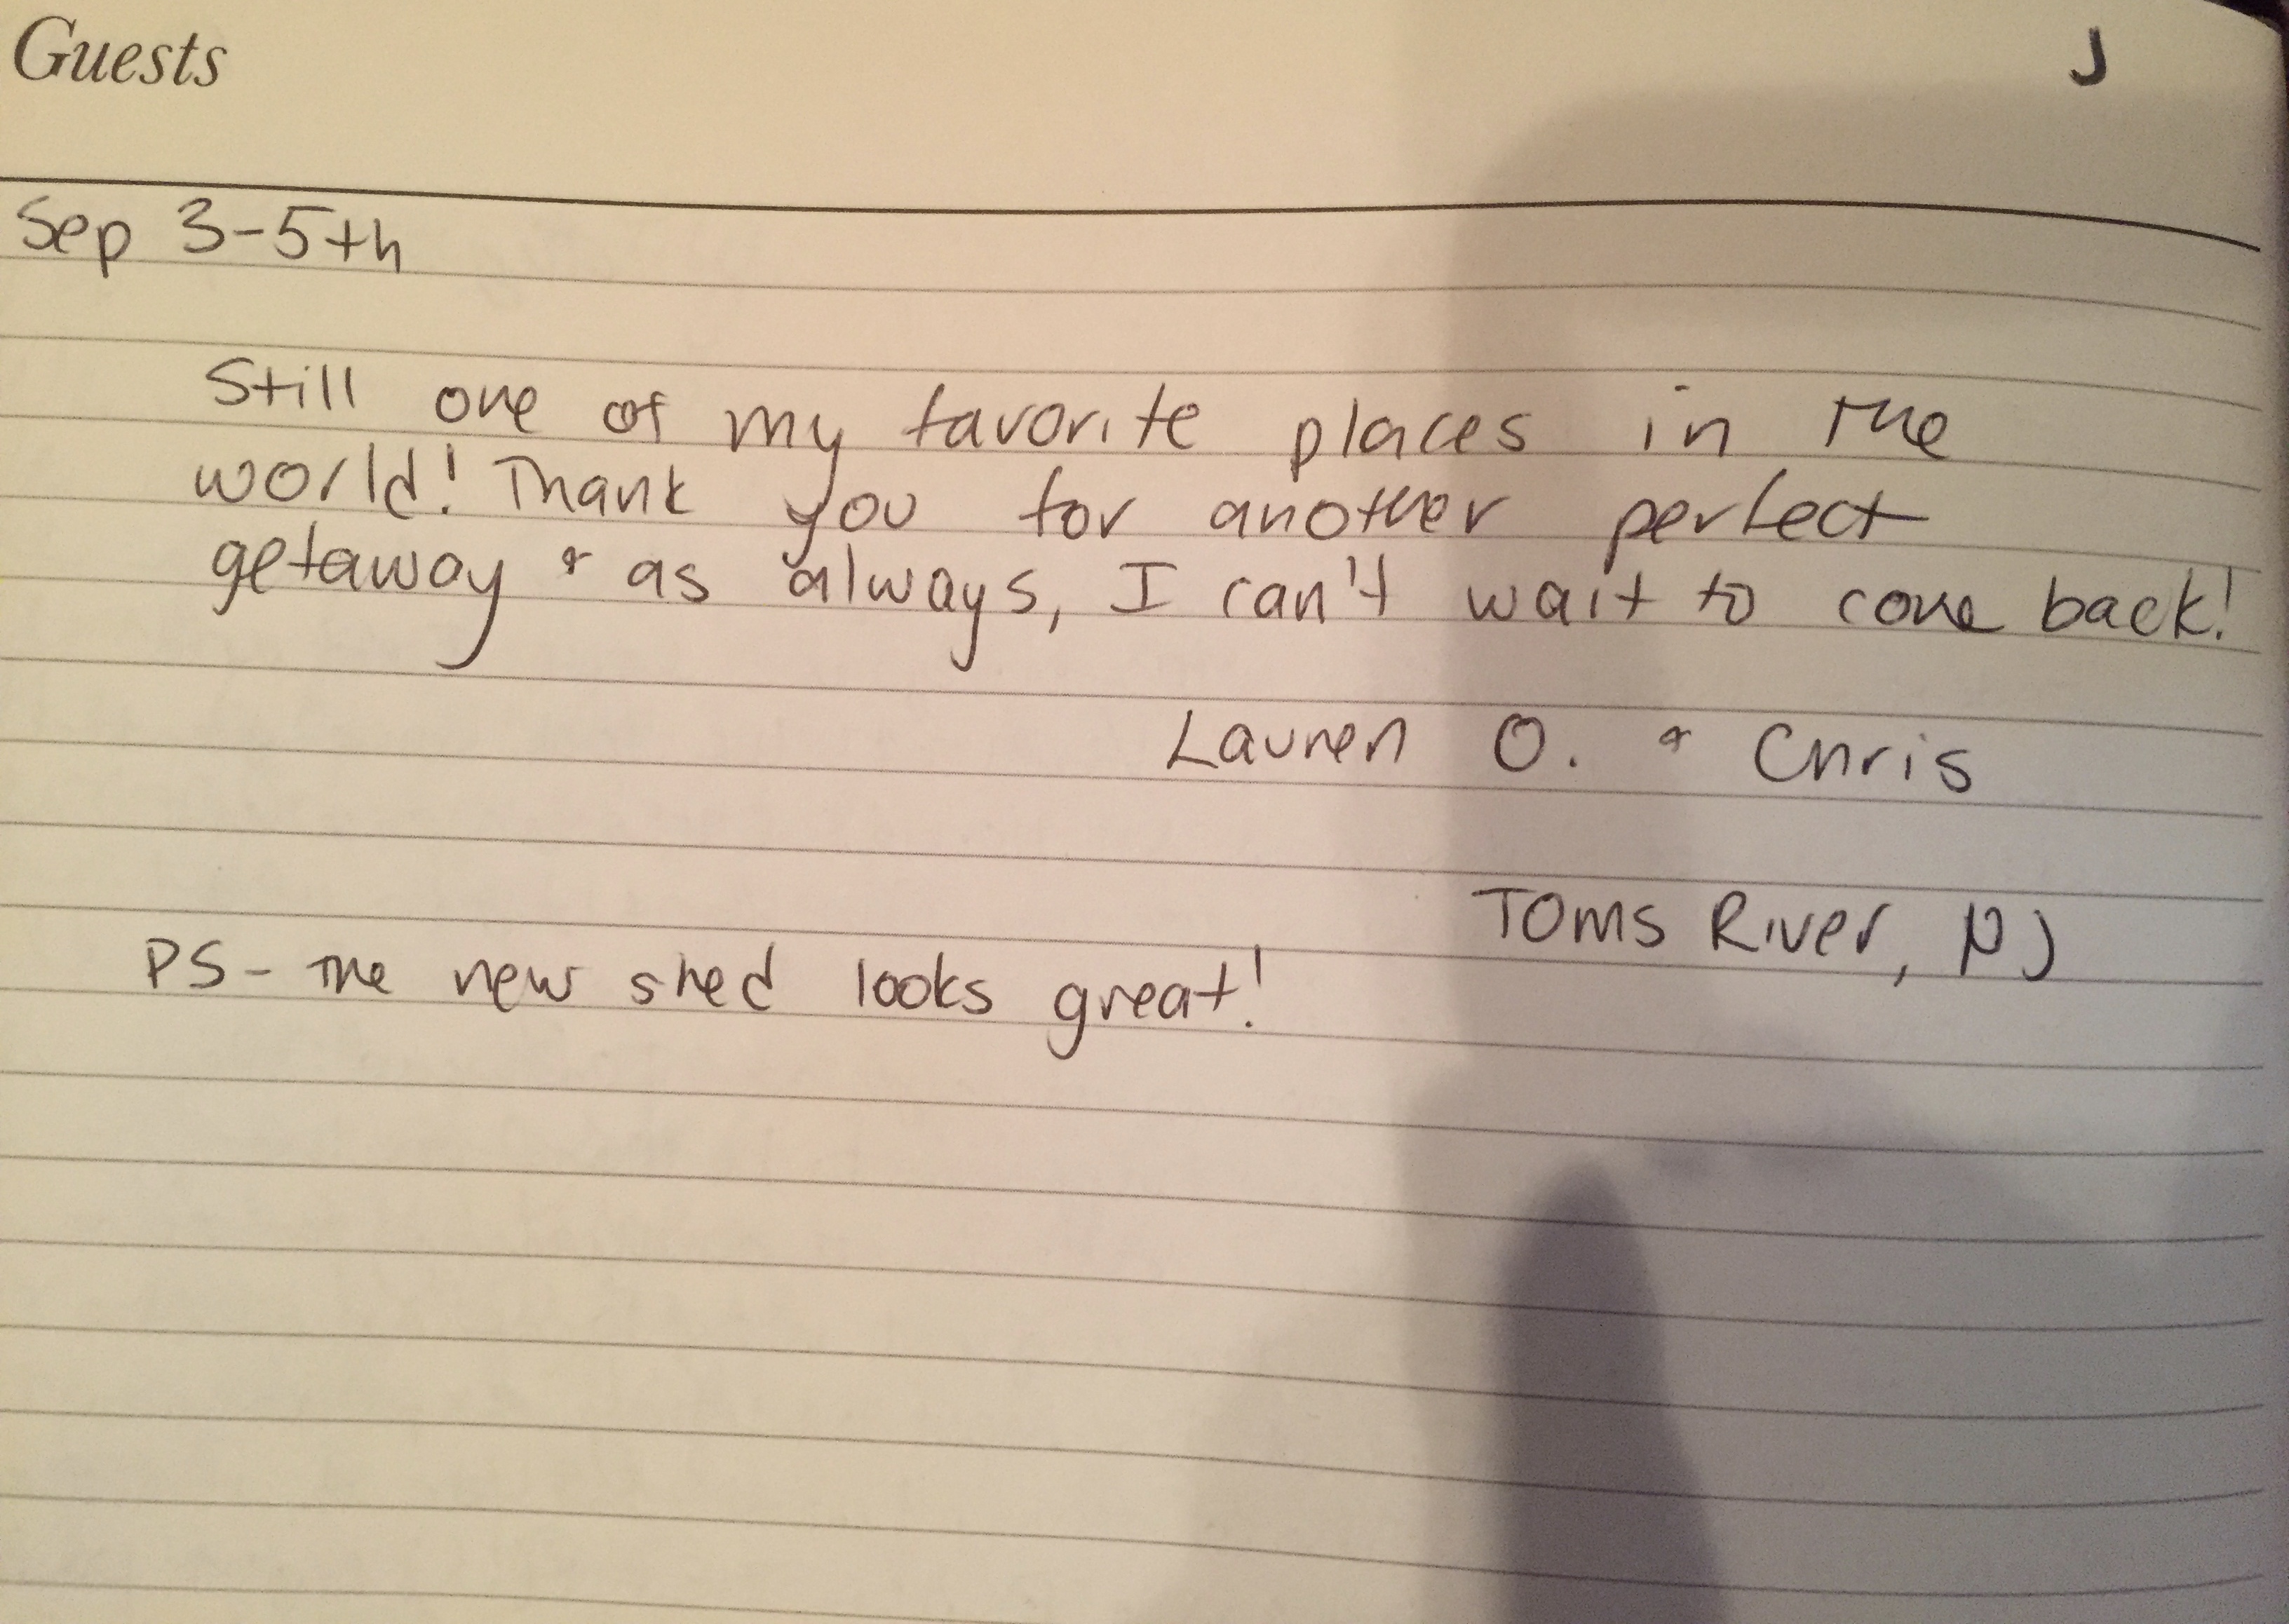 Guests J
Sep 3-5th
Still one of my favorite places in the
world! Thank you for another perfect
getaway & as always, I can't wait to come back!
Lauren O. & Chris
Toms River, NJ
PS- The new shed looks great!